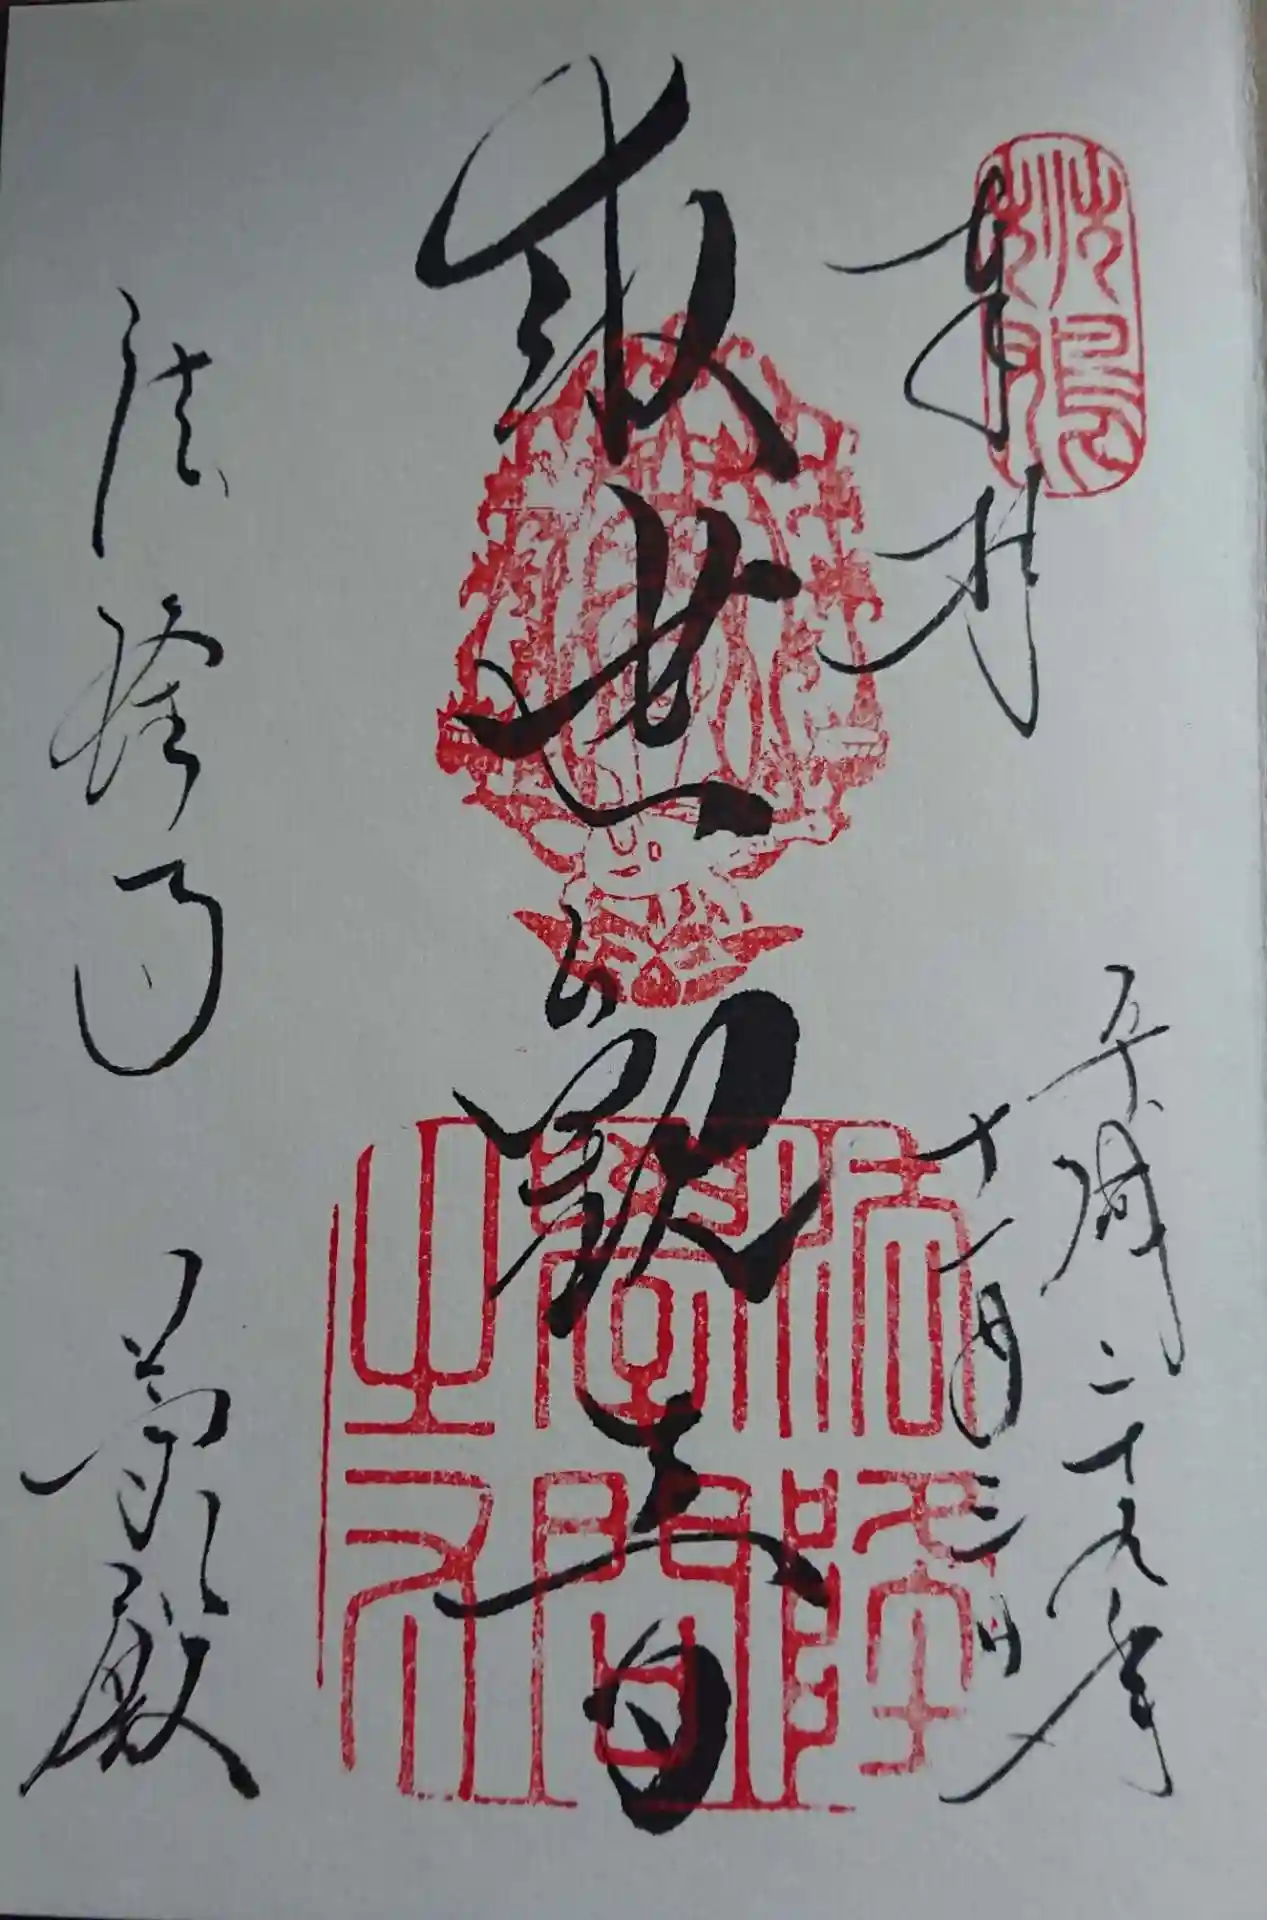 奉拝
平成二十九年
十一月三日
救世観音
法隆寺 夢殿
法隆
學問